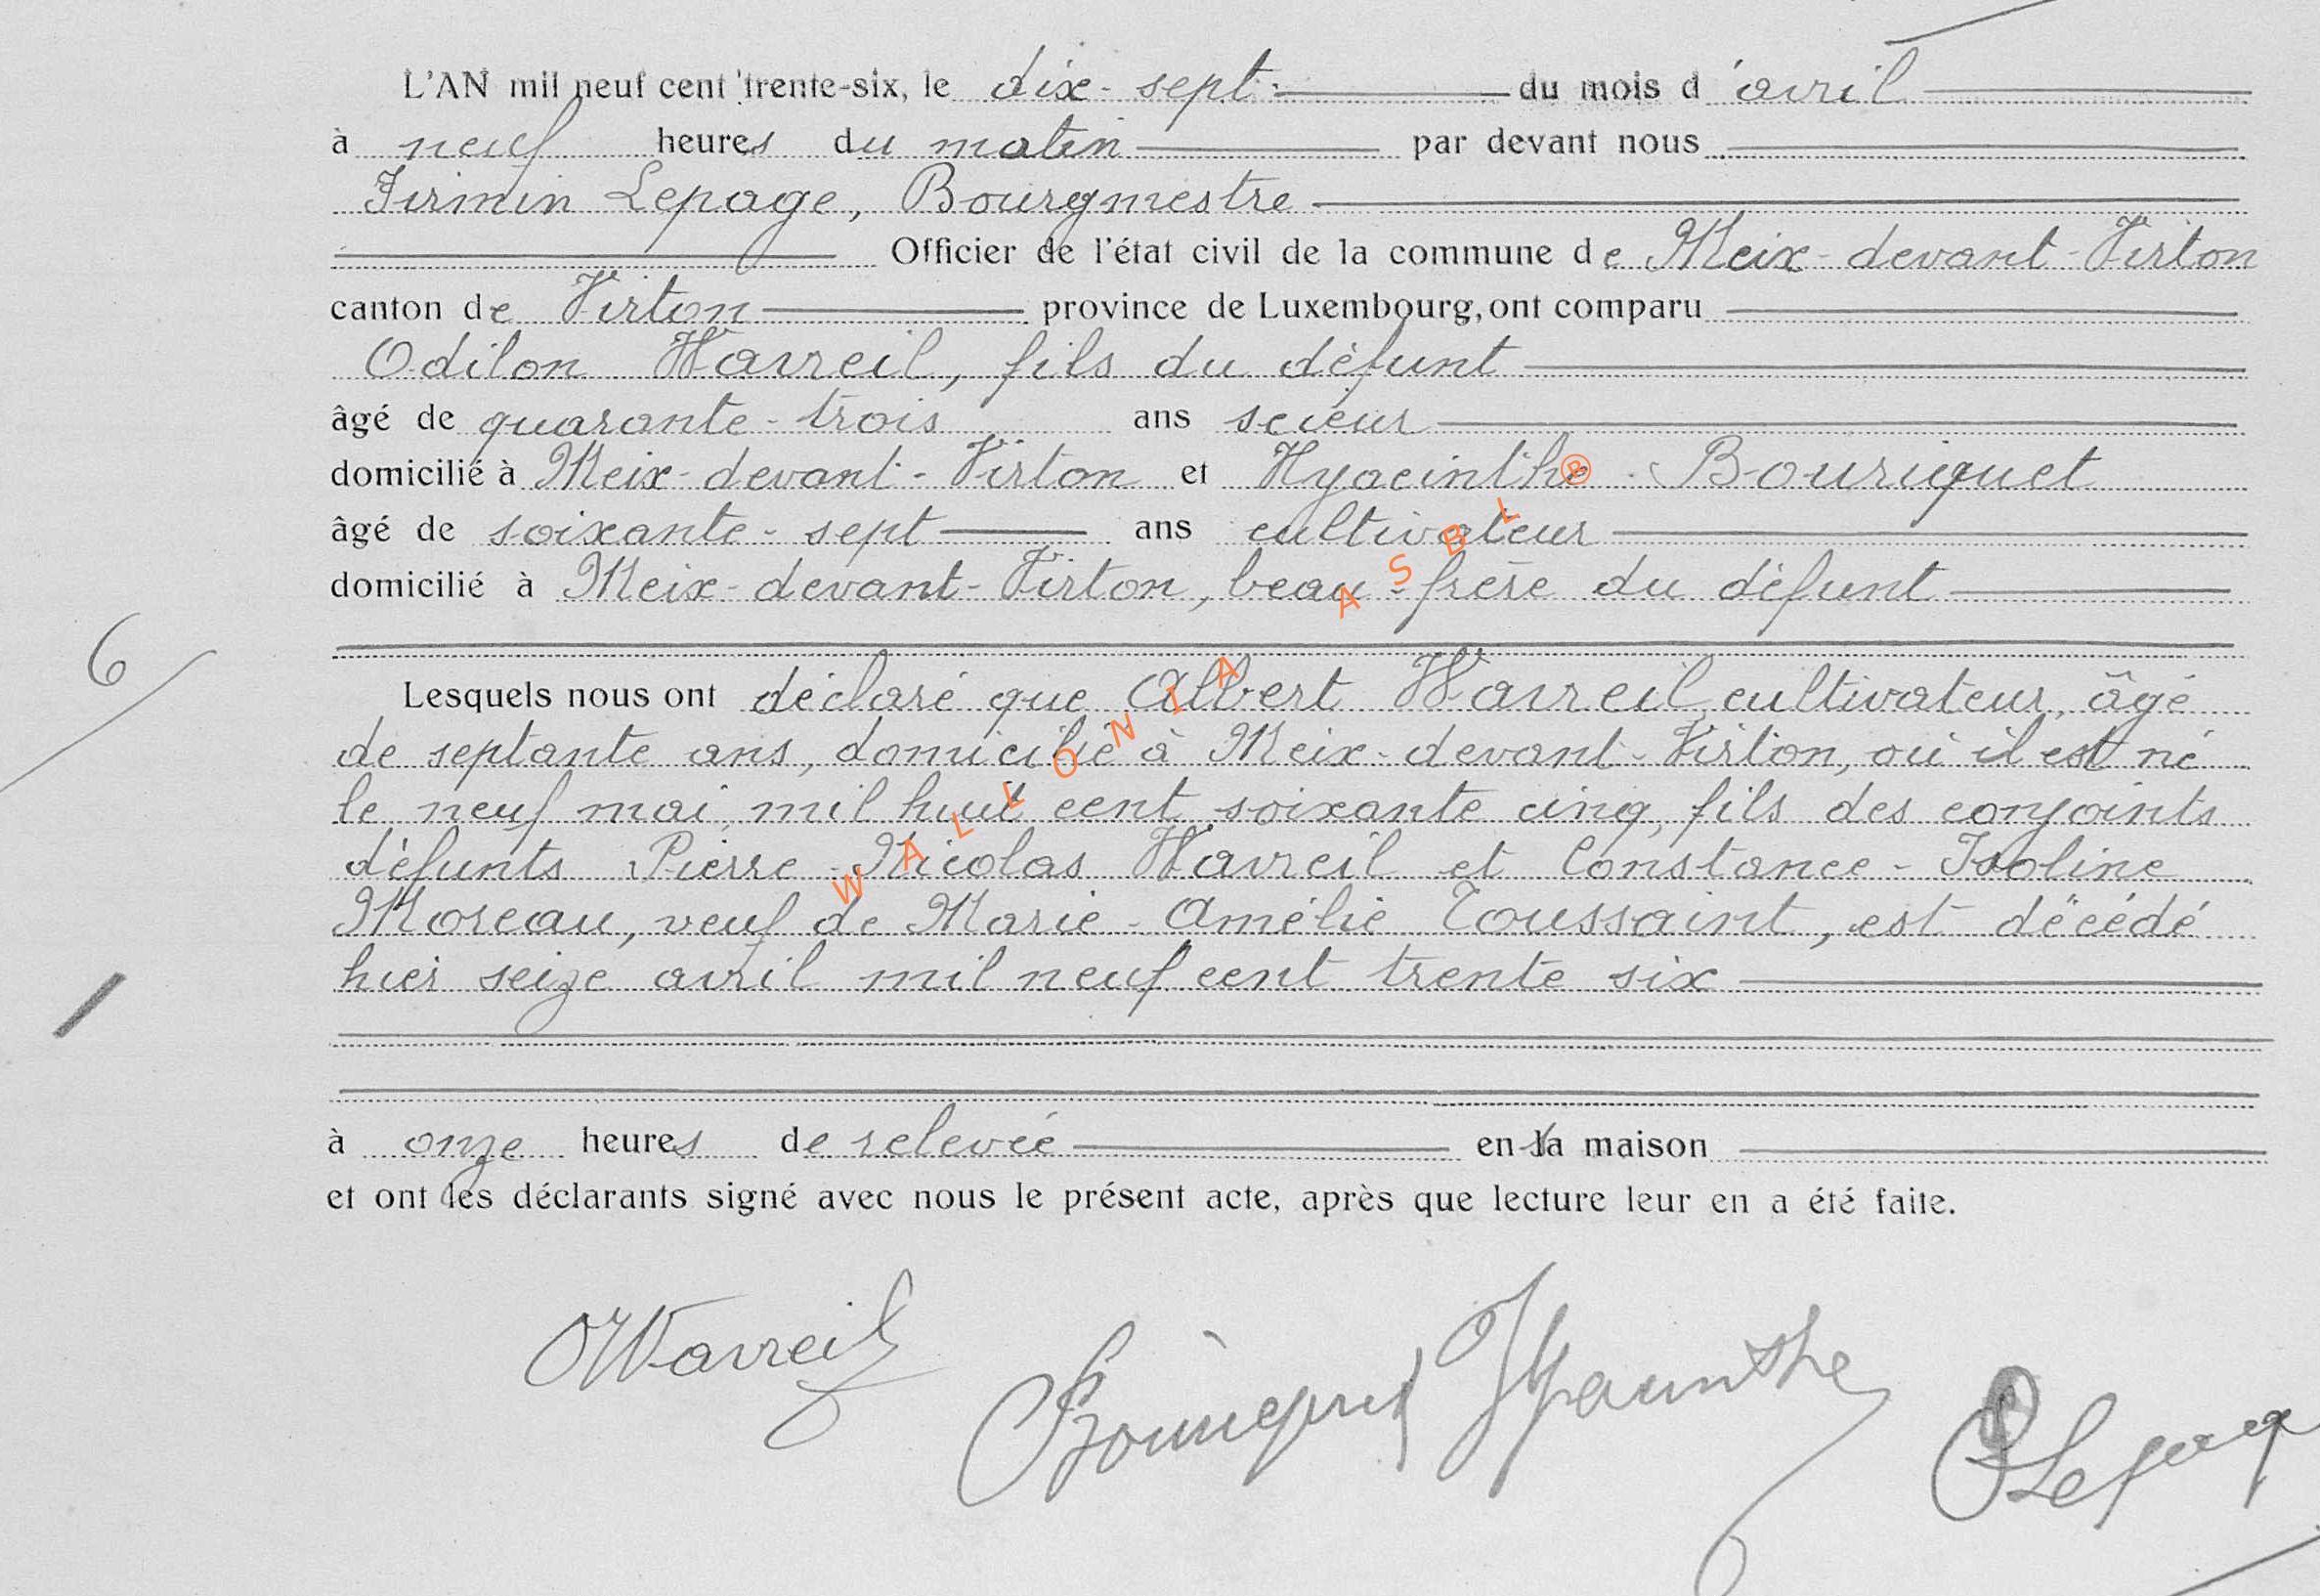 L'AN mil neuf cent trente-six, le dix-sept du mois d'avril
à neuf heures du matin par devant nous
Firmin Lepage, Bourgmestre
Officier de l'état civil de la commune de Meix-devant-Virton
canton de Virton province de Luxembourg, ont comparu
Odilon Wavreil, fils du défunt
âgé de quarante-trois ans scieur
domicilié à Meix-devant-Virton et Hyacinthe Bouriquet
âgé de soixante-sept ans cultivateur
domicilié à Meix-devant-Virton, beau-frère du défunt
6
Lesquels nous ont déclaré que Albert Wavreil, cultivateur, âgé
de septante ans, domicilié à Meix-devant-Virton, où il est né
le neuf mai mil huit cent soixante cinq, fils des conjoints
défunts Pierre-Nicolas Wavreil et Constance-Isoline
Moreau, veuf de Marie-Amélie Toussaint, est décédé
hier seize avril mil neuf cent trente six
à onze heures de relevée en sa maison
et ont les déclarants signé avec nous le présent acte, après que lecture leur en a été faite.
OWavreil
Bouriquet Hyacinthe
Lepage
WALLONIA ASBL ®